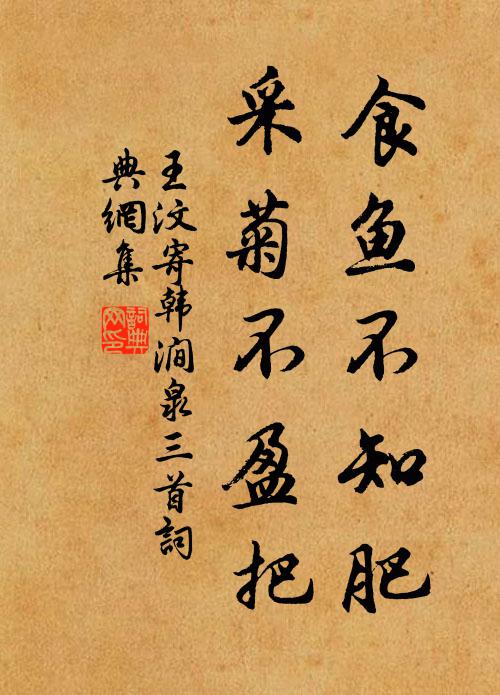 食鱼不知肥
采菊不盈把
王汶寄韩涧泉三首詞
典網集
詞典
网印